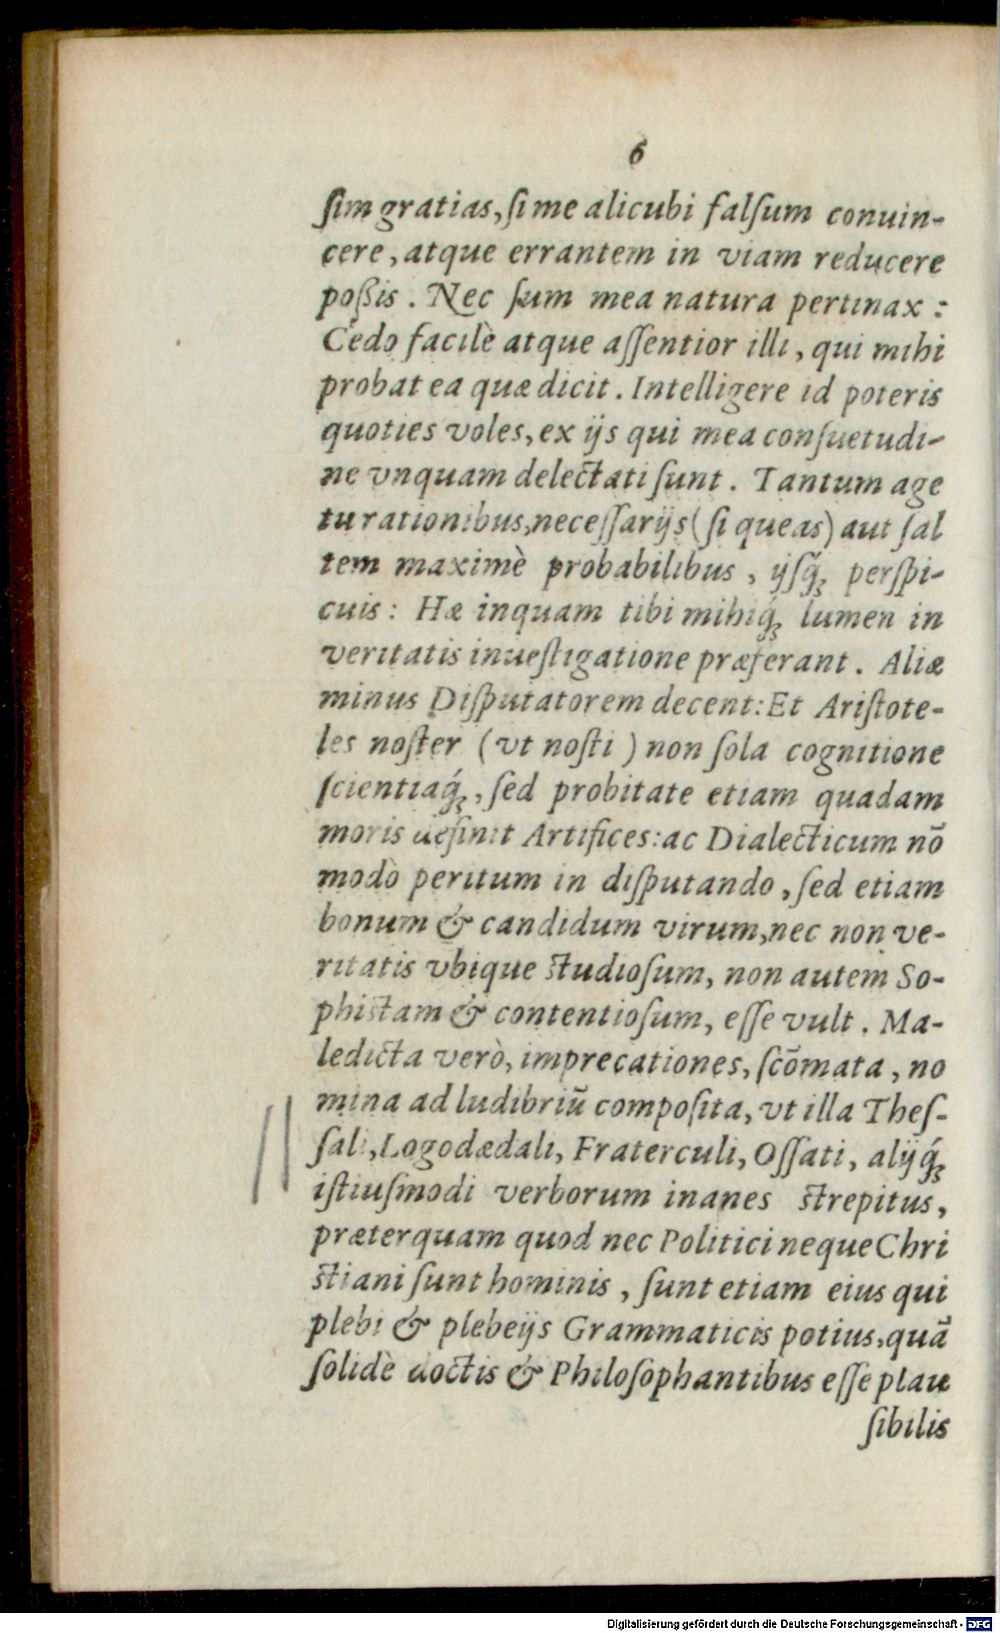 6
ſim gratias, ſi me alicubi falſum conuin-
cere, atque errantem in viam reducere
poßis. Nec ſum mea natura pertinax:
Cedo facilè atque aſſentior illi, qui mihi
probat ea quæ dicit. Intelligere id poteris
quoties voles, ex ijs qui mea conſuetudi-
ne vnquam delectati ſunt. Tantum age
tu rationibus, neceſſarijs (ſi queas) aut ſal
tem maximè probabilibus, ijſq́; perſpi-
cuis: Hæ inquam tibi mihiq́; lumen in
veritatis inueſtigatione præferant. Aliæ
minus Diſputatorem decent: Et Ariſtote-
les noſter (vt noſti) non ſola cognitione
ſcientiaq́;, ſed probitate etiam quadam
moris definit Artifices: ac Dialecticum nō
modò peritum in diſputando, ſed etiam
bonum & candidum virum, nec non ve-
ritatis vbique ſtudioſum, non autem So-
phiſtam & contentioſum, eſſe vult. Ma-
ledicta verò, imprecationes, ſcōmata, no
mina ad ludibriū compoſita, vt illa Theſ-
ſali, Logodædali, Fraterculi, Oſſati, alijq́;
iſtiuſmodi verborum inanes ſtrepitus,
præterquam quod nec Politici neque Chri
ſtiani ſunt hominis, ſunt etiam eius qui
plebi & plebeijs Grammaticis potius, quā
ſolidè doctis & Philoſophantibus eſſe plau
ſibilis
Digitalisierung gefördert durch die Deutsche Forschungsgemeinschaft - DFG